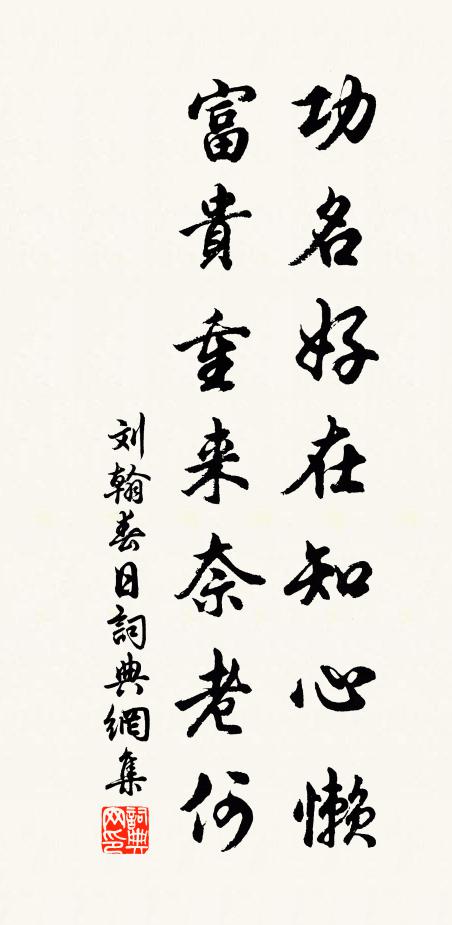 功名好在知心懒
富貴重来奈老何
刘翰春日詞典網集
詞典網印